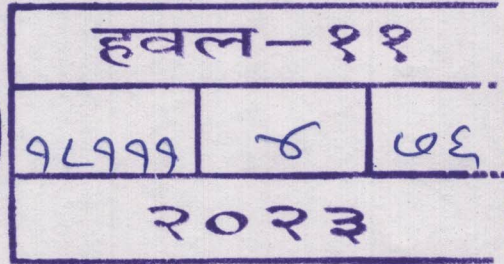 हवल-११
१८१११ ४ ७६
२०२३